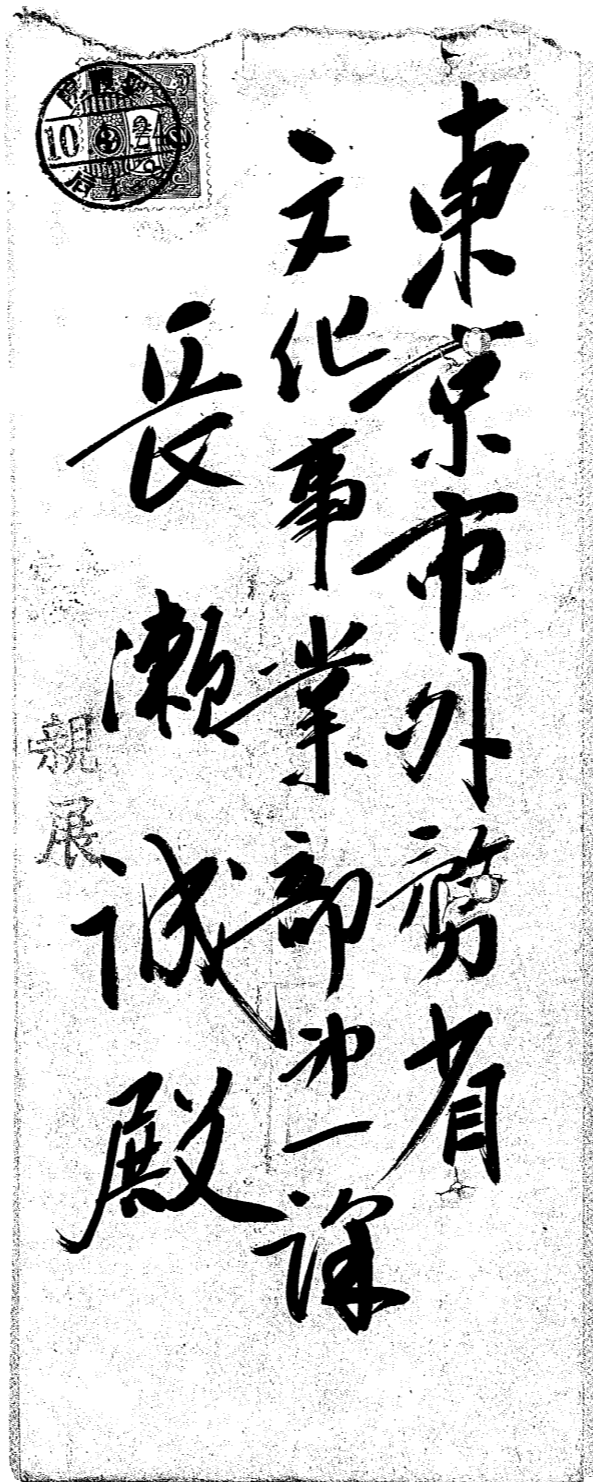 東京市外務省
文化事業部第一課
長瀬誠殿
親展
10